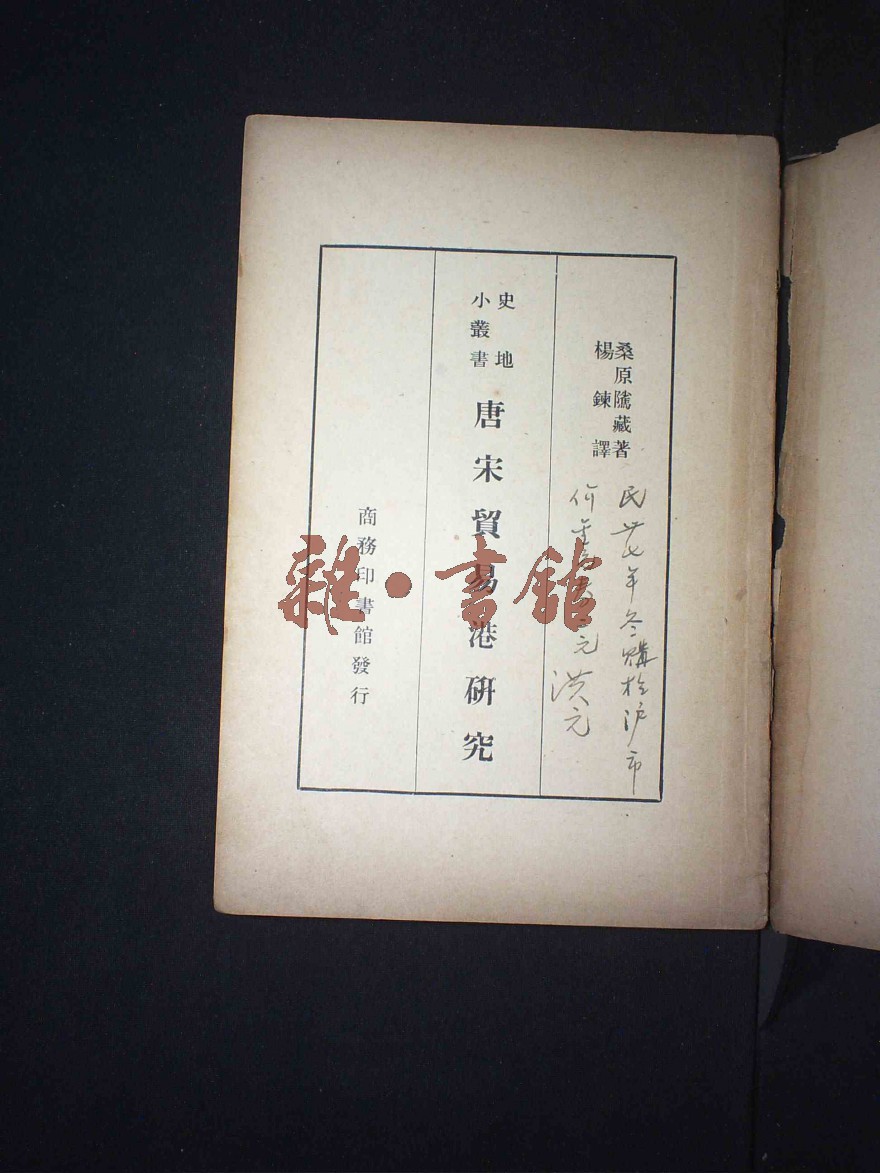 桑原隲藏著
楊鍊譯
民廿七年冬購於沪市
价金元
洪元
史地
小叢書
唐宋貿易港研究
商務印書館發行
雜·書館